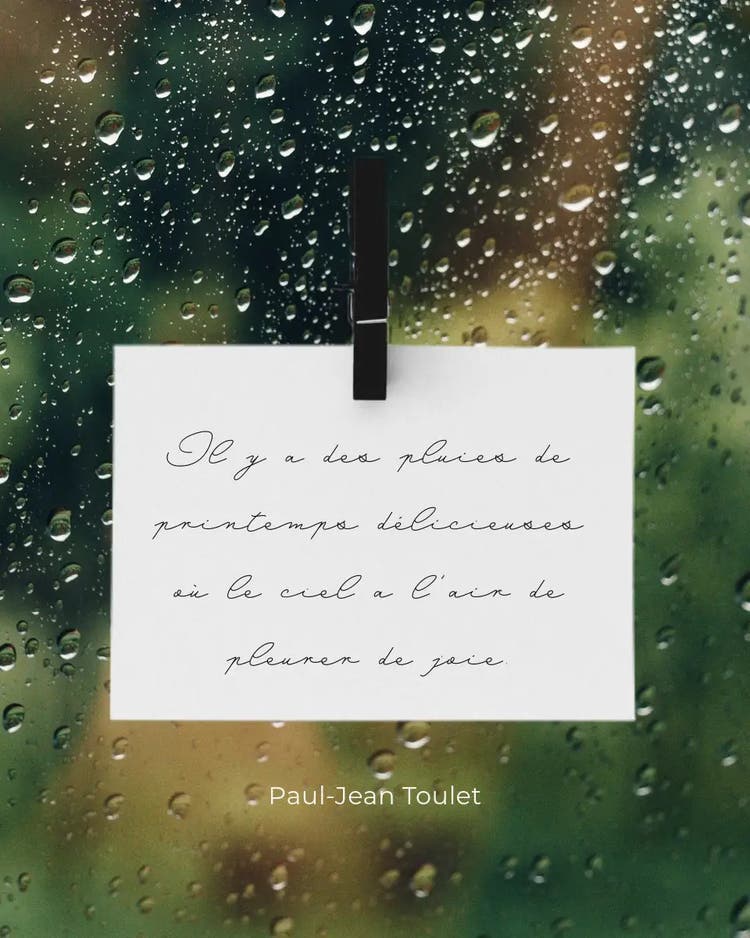 Il y a des pluies de
printemps délicieuses
où le ciel a l'air de
pleurer de joie.
Paul-Jean Toulet